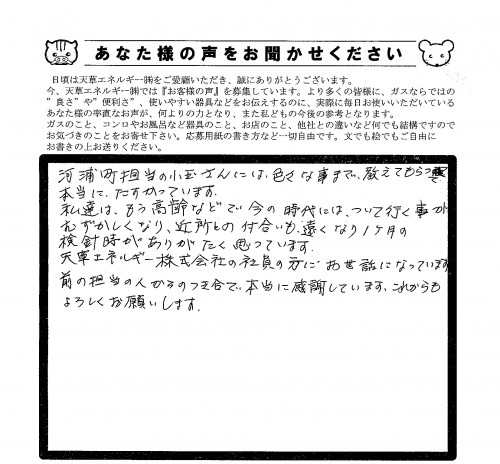 あなた様の声をお聞かせください
日頃は天草エネルギー㈱をご愛顧いただき、誠にありがとうございます。
今、天草エネルギー㈱では『お客様の声』を募集しています。より多くの皆様に、ガスならではの
"良さ"や"便利さ"、使いやすい器具などをお伝えするのに、実際に毎日お使いいただいている
あなた様の率直なお声が、何よりの力となり、また私どもの今後の参考となります。
ガスのこと、コンロやお風呂など器具のこと、お店のこと、他社との違いなど何でも結構ですので
お気づきのことをお寄せ下さい。応募用紙の書き方など一切自由です。文でも絵でもご自由に
お書きの上お送りください。
河浦町担当の小玉さんには、色々な事まで、教えてもらって
本当に、たすかっています。
私達は、もう高齢などで今の時代には、ついて行く事が
むずかしくなり、近所との付合いも、遠くなり1ヶ月の
検針時がありがたく思っています。
天草エネルギー株式会社の社員の方に、お世話になっています
前の担当の人からのつき合で、本当に感謝しています。これからも
よろしくお願いします。